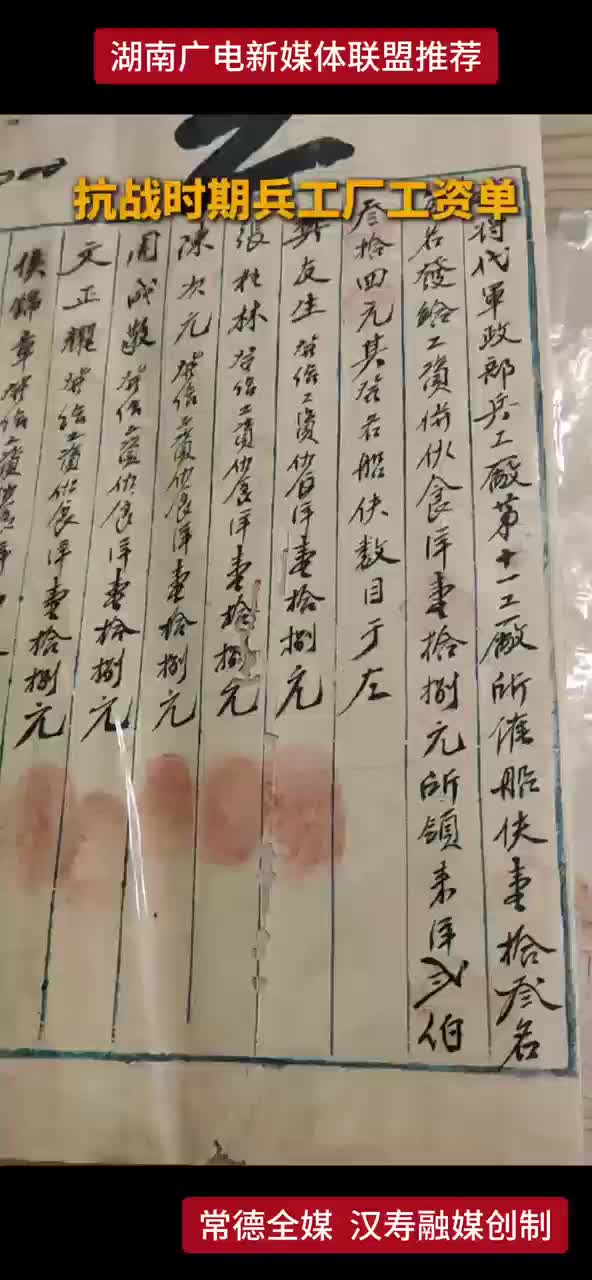 湖南广电新媒体联盟推荐
抗战时期兵工厂工资单
代軍政部兵工廠第十一工廠所催船伕壹拾叁名
名發給工資併伙食洋壹拾捌元所領来洋弍佰
叁拾四元其発名船伕数目于左
友生発給工資伙食洋壹拾捌元
張桂林発給工資伙食洋壹拾捌元
陳次元発給工資伙食洋壹拾捌元
周成發給工資伙食洋壹拾捌元
文正耀発給工資伙食洋壹拾捌元
侯錦章発給工資伙食洋壹拾捌元
常德全媒 汉寿融媒创制